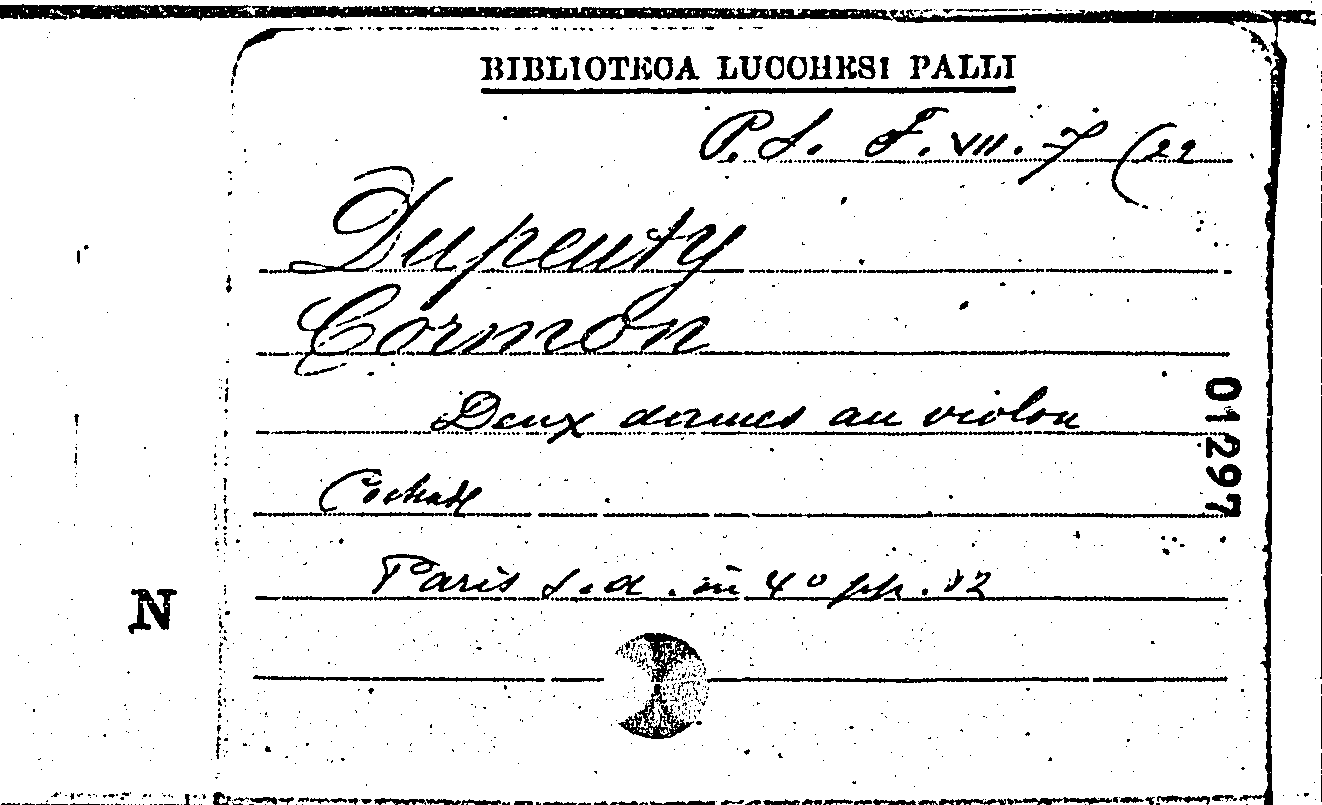 BIBLIOTECA LUCCHESI PALLI
P. S. F. VII. 7 (22
Dupeuty
Cormon
Deux dames au violon
Paris s. d. in 4° pp. 12
N
01297